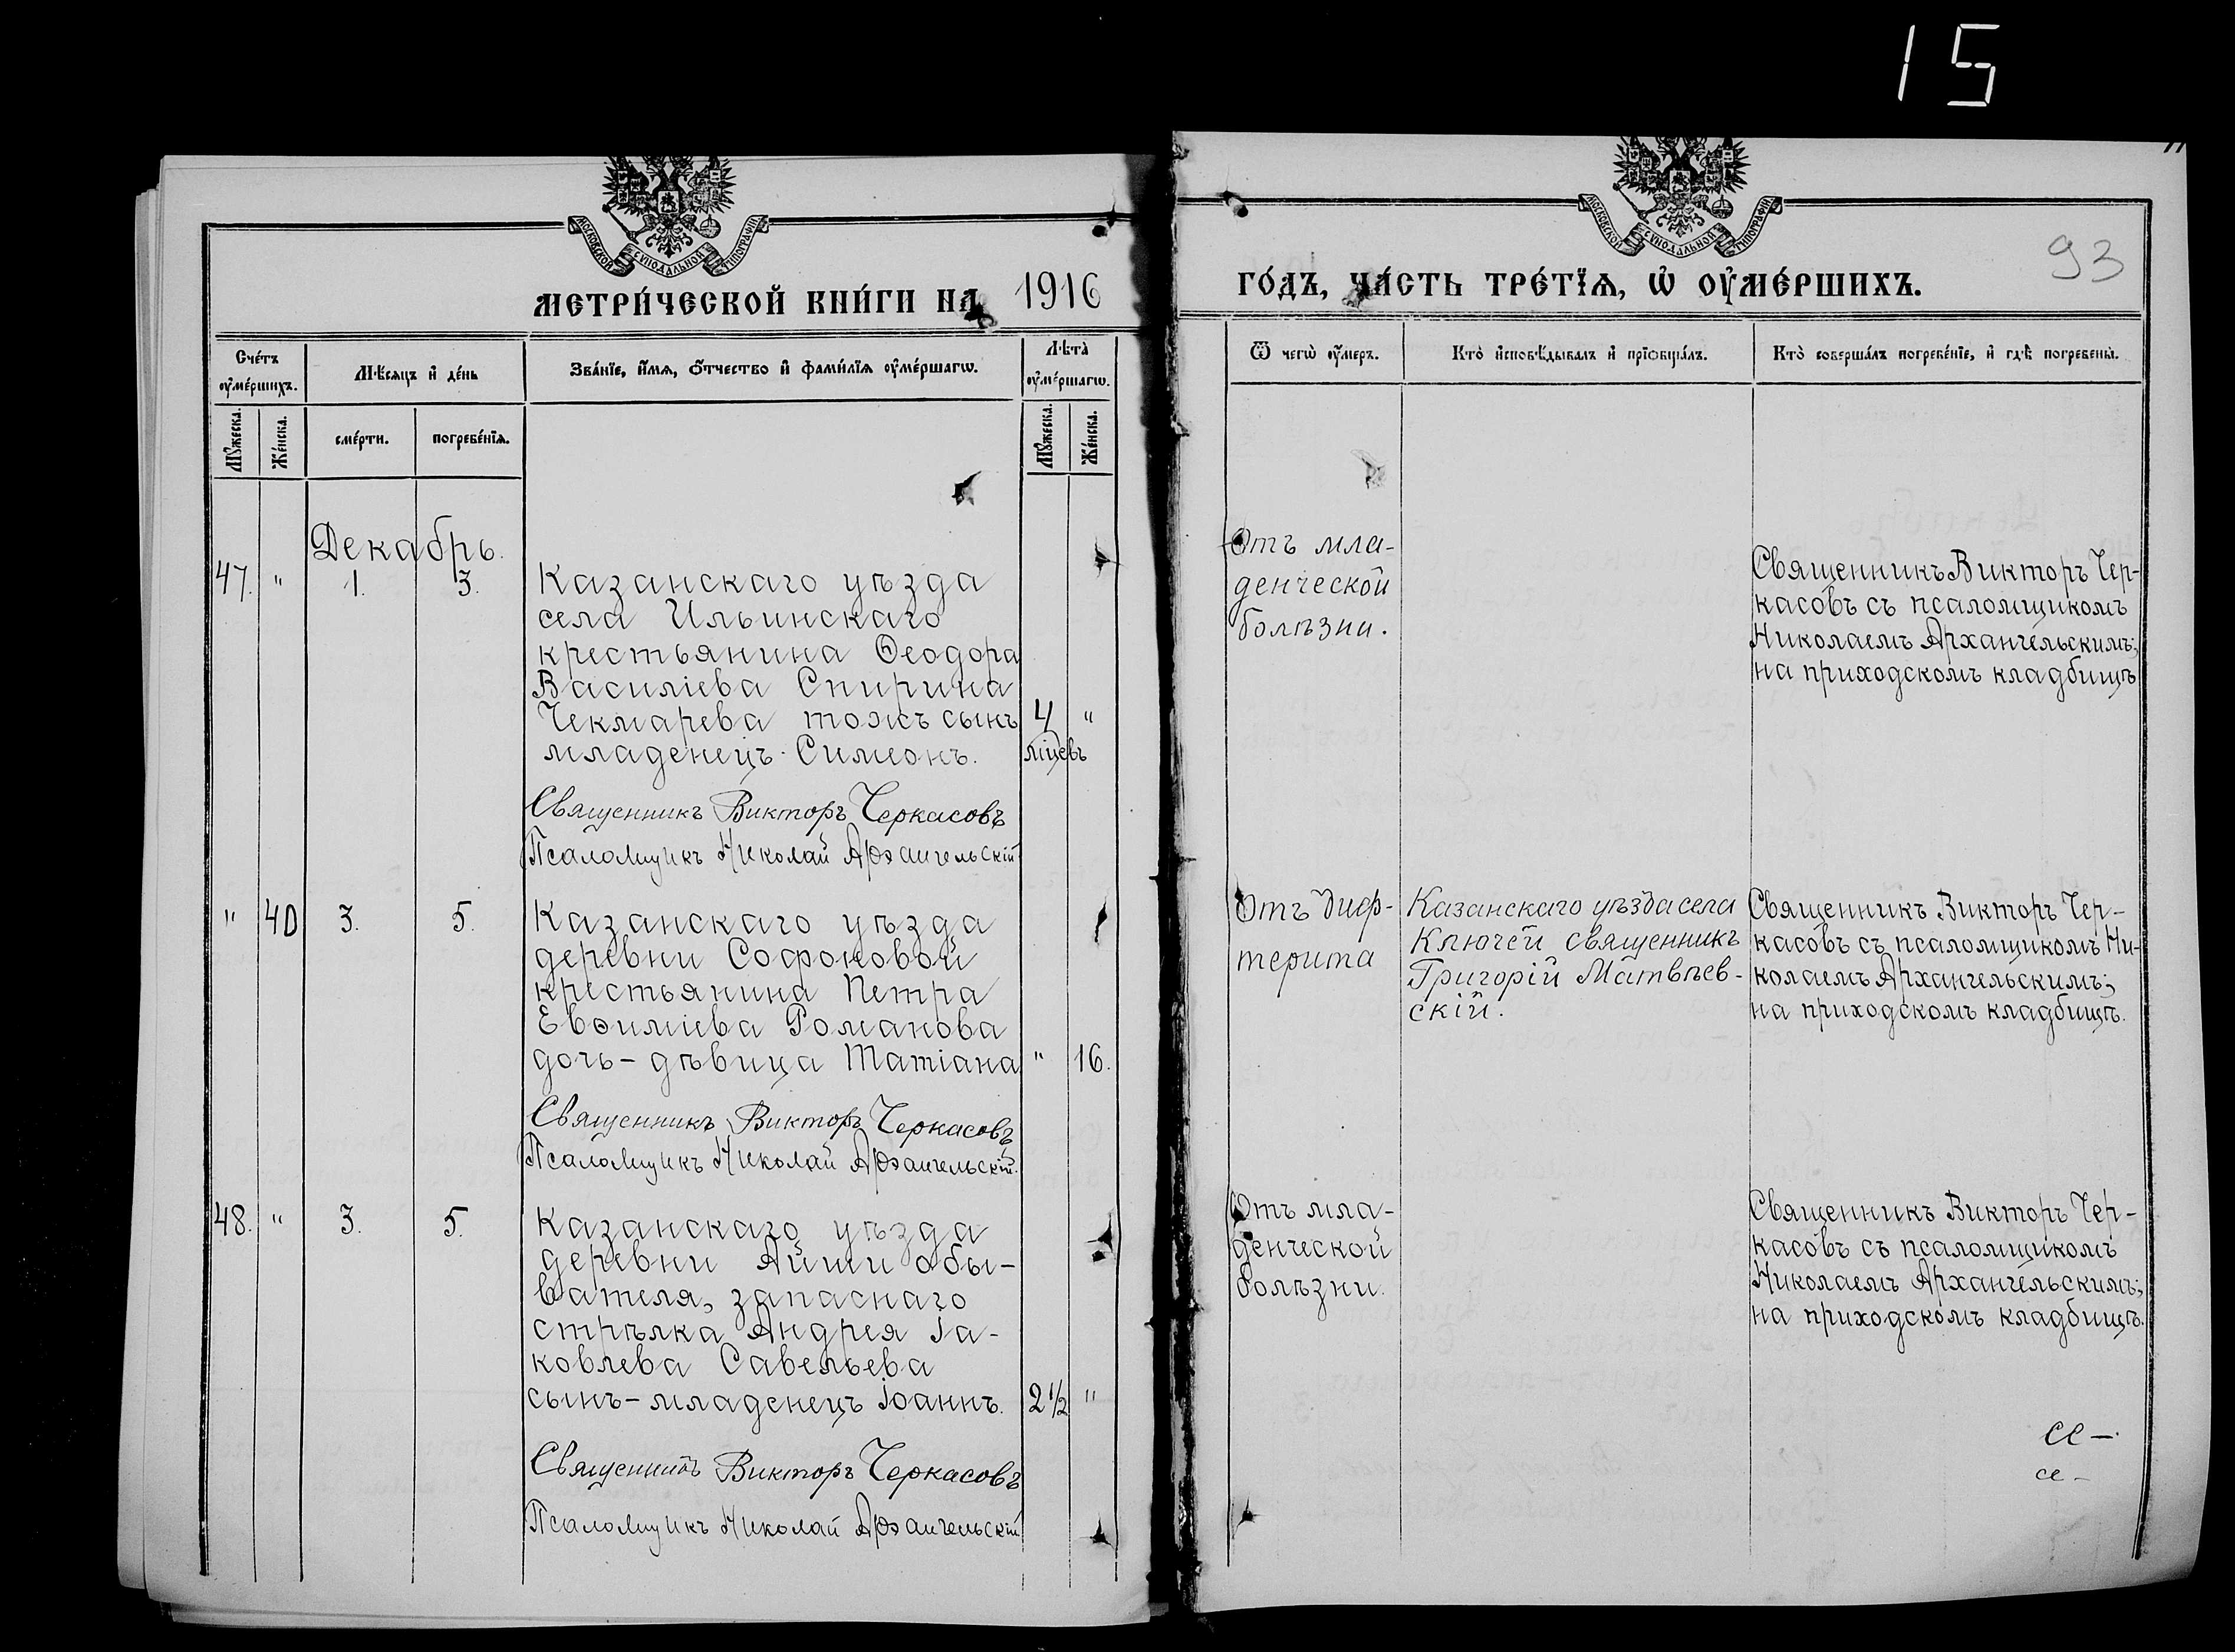 15
МОСКОВСКОЙ СѴНОДАЛЬНОЙ ТИПОГРАФІИ
МОСКОВСКОЙ СѴНОДАЛЬНОЙ ТИПОГРАФІИ
93
МЕТРИ́ЧЕСКОЙ КНИ́ГИ НА 1916
ГО́ДЪ, ЧА́СТЬ ТРЕ́ТЇѦ, Ѡ҆ ОУ҆МЕ́РШИХЪ.
Сче́тъ оу҆ме́ршихъ.
Мѣ́сѧцъ и҆ де́нь
Зва́нїе, и҆́мѧ, ѻ҆́тчество и҆ фамѝлїѧ оу҆ме́ршагѡ.
Лѣ́та оу҆ме́ршагѡ.
Мꙋ́жеска.
Же́нска.
сме́рти.
погребе́нїѧ.
Мꙋ́жеска.
Же́нска.
Ѿ чегѡ̀ оу҆́меръ.
Кто̀ и҆сповѣ́дывалъ и҆ прїѡбща́лъ.
Кто̀ соверша́лъ погребе́нїе, и҆ гдѣ̀ погребены̀.
Декабрь.
47. " 1. 3.
Казанскаго уѣзда
села Ильинскаго
крестьянина Ѳеодора
Василіева Спирина
Чекмарева тожъ сынъ 4 "
младенецъ Симеонъ. мцевъ
Священникъ Викторъ Черкасовъ
Псаломщикъ Николай Архангельскій
Отъ мла-
денческой
болѣзни.
Священникъ Викторъ Чер-
касовъ съ псаломщикомъ
Николаемъ Архангельскимъ;
на приходскомъ кладбищѣ
" 40 3. 5.
Казанскаго уѣзда
деревни Софоновой
крестьянина Петра
Евѳиміева Романова
дочь-дѣвица Татіана " 16.
Священникъ Викторъ Черкасовъ
Псаломщикъ Николай Архангельскій.
Отъ диф-
терита
Казанскаго уѣзда села
Ключей священникъ
Григорій Матвѣев-
скій.
Священникъ Викторъ Чер-
касовъ съ псаломщикомъ Ни-
колаемъ Архангельскимъ;
на приходскомъ кладбищѣ.
48. " 3. 5.
Казанскаго уѣзда
деревни Айши обы-
вателя, запаснаго
стрѣлка Андрея Іа-
ковлева Савельева
сынъ-младенецъ Іоаннъ. 2 1/2 "
Священникъ Викторъ Черкасовъ
Псаломщикъ Николай Архангельскій
Отъ мла-
денческой
болѣзни.
Священникъ Викторъ Чер-
касовъ съ псаломщикомъ
Николаемъ Архангельскимъ;
на приходскомъ кладбищѣ.